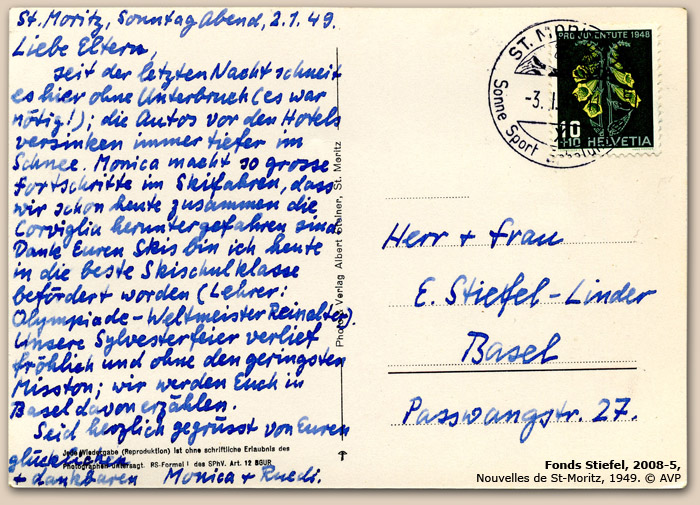 St. Moritz, Sonntag Abend, 2.1.49.
Liebe Eltern,
seit der letzten Nacht schneit
es hier ohne Unterbruch (es war
nötig!); die Autos vor den Hotels
versinken immer tiefer im
Schnee. Monica macht so grosse
Fortschritte im Skifahren, dass
wir schon heute zusammen die
Corviglia heruntergefahren sind.
Dank Euren Skis bin ich heute
in die beste Skischulklasse
befördert worden (Lehrer:
Olympiade-Weltmeister Reinalter).
Unsere Sylvesterfeier verlief
fröhlich und ohne den geringsten
Misston; wir werden Euch in
Basel davon erzählen.
Seid herzlich gegrüsst von Euren
glücklichen
+ dankbaren Monica + Ruedi.
Jede Wiedergabe (Reproduktion) ist ohne schriftliche Erlaubnis des
Photographen untersagt. RS-Formel I des SPhV. Art. 12 BGUR
Photo + Verlag Albert Steiner, St. Moritz
ST. MORITZ
-3.I.
Sonne Sport
PRO JUVENTUTE 1948
10
+10 HELVETIA
Herr + Frau
E. Stiefel-Linder
Basel
Passwangstr. 27.
Fonds Stiefel, 2008-5,
Nouvelles de St-Moritz, 1949. © AVP